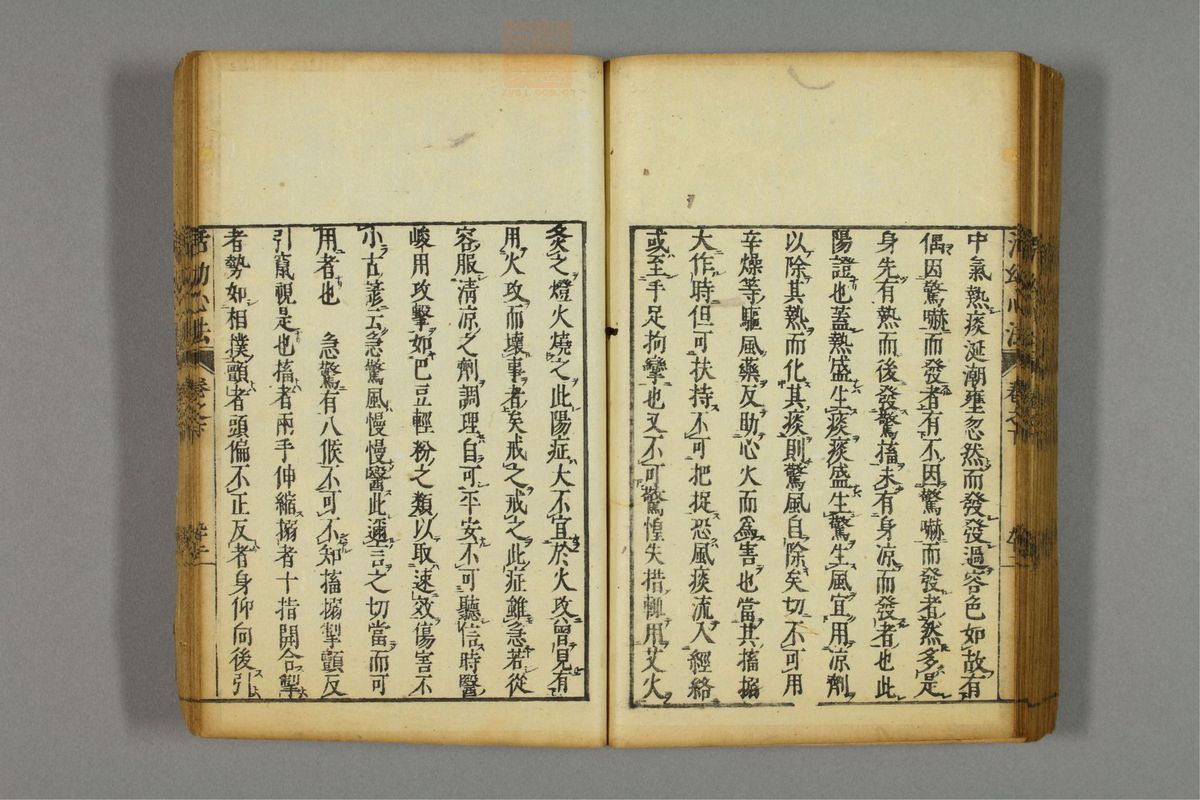 中氣熱痰涎潮壅忽然而發發過容色如故有
偶因驚嚇而發者有不因驚嚇而發者然多是
身先有熱而後發驚搐未有身凉而發者也此
陽證也蓋熱盛生痰痰盛生驚生風宜用凉劑
以除其熱而化其痰則驚風自除矣切不可用
辛燥等驅風藥反助心火而爲害也當其搐搦
大作時但可扶持不可把捉恐風痰流入經絡
或至手足拘攣也又不可驚惶失措輙用艾火
灸之燈火燒之此陽症大不宜於火攻曾見有
用火攻而壞事者矣戒之戒之此症雖急若從
容服清凉之劑調理自可平安不可聽信時醫
峻用攻擊如巴豆輕粉之類以取速效傷害不
小古諺云急驚風慢慢醫此邇言之切當而可
用者也　急驚有八候不可不知搐搦掣顫反
引竄視是也搐者兩手伸縮搦者十指開合掣
者勢如相撲顫者頭偏不正反者身仰向後引
活幼心法
卷之